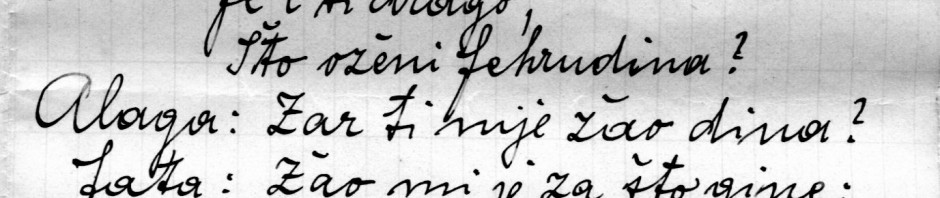 je i ti drago,
Što oženi fehrudina?
Alaga: Zar ti nije žao dina?
fata: Žao mi je za što gine;